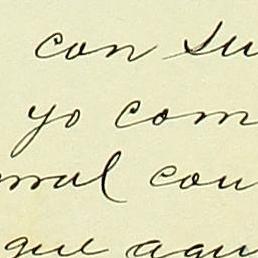 con su
yo com
mal con
que aqu